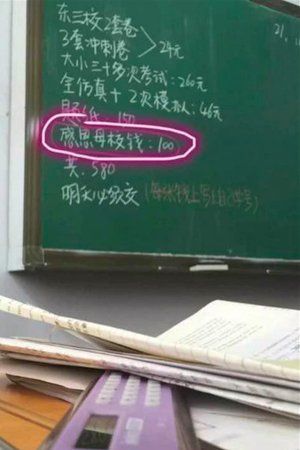 东三校2套卷
3套冲刺卷 >24元
大小三十多次考试:260元
全仿真+2次模拟:46元
题纸:150
感恩母校钱:100
共:580
明天必须交(每张钱上写自己学号)
21,